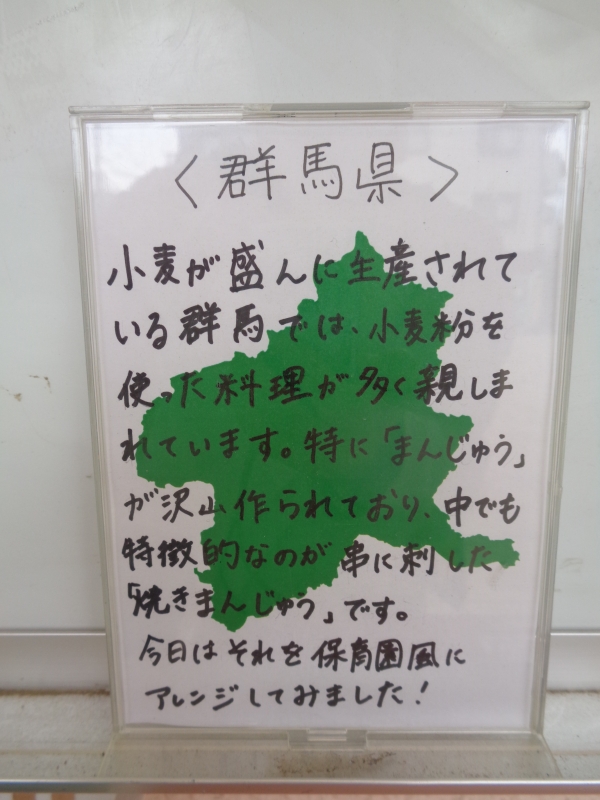 〈群馬県〉
小麦が盛んに生産されて
いる群馬では、小麦粉を
使った料理が多く親しま
れています。特に「まんじゅう」
が沢山作られており、中でも
特徴的なのが串に刺した
「焼きまんじゅう」です。
今日はそれを保育園風に
アレンジしてみました！